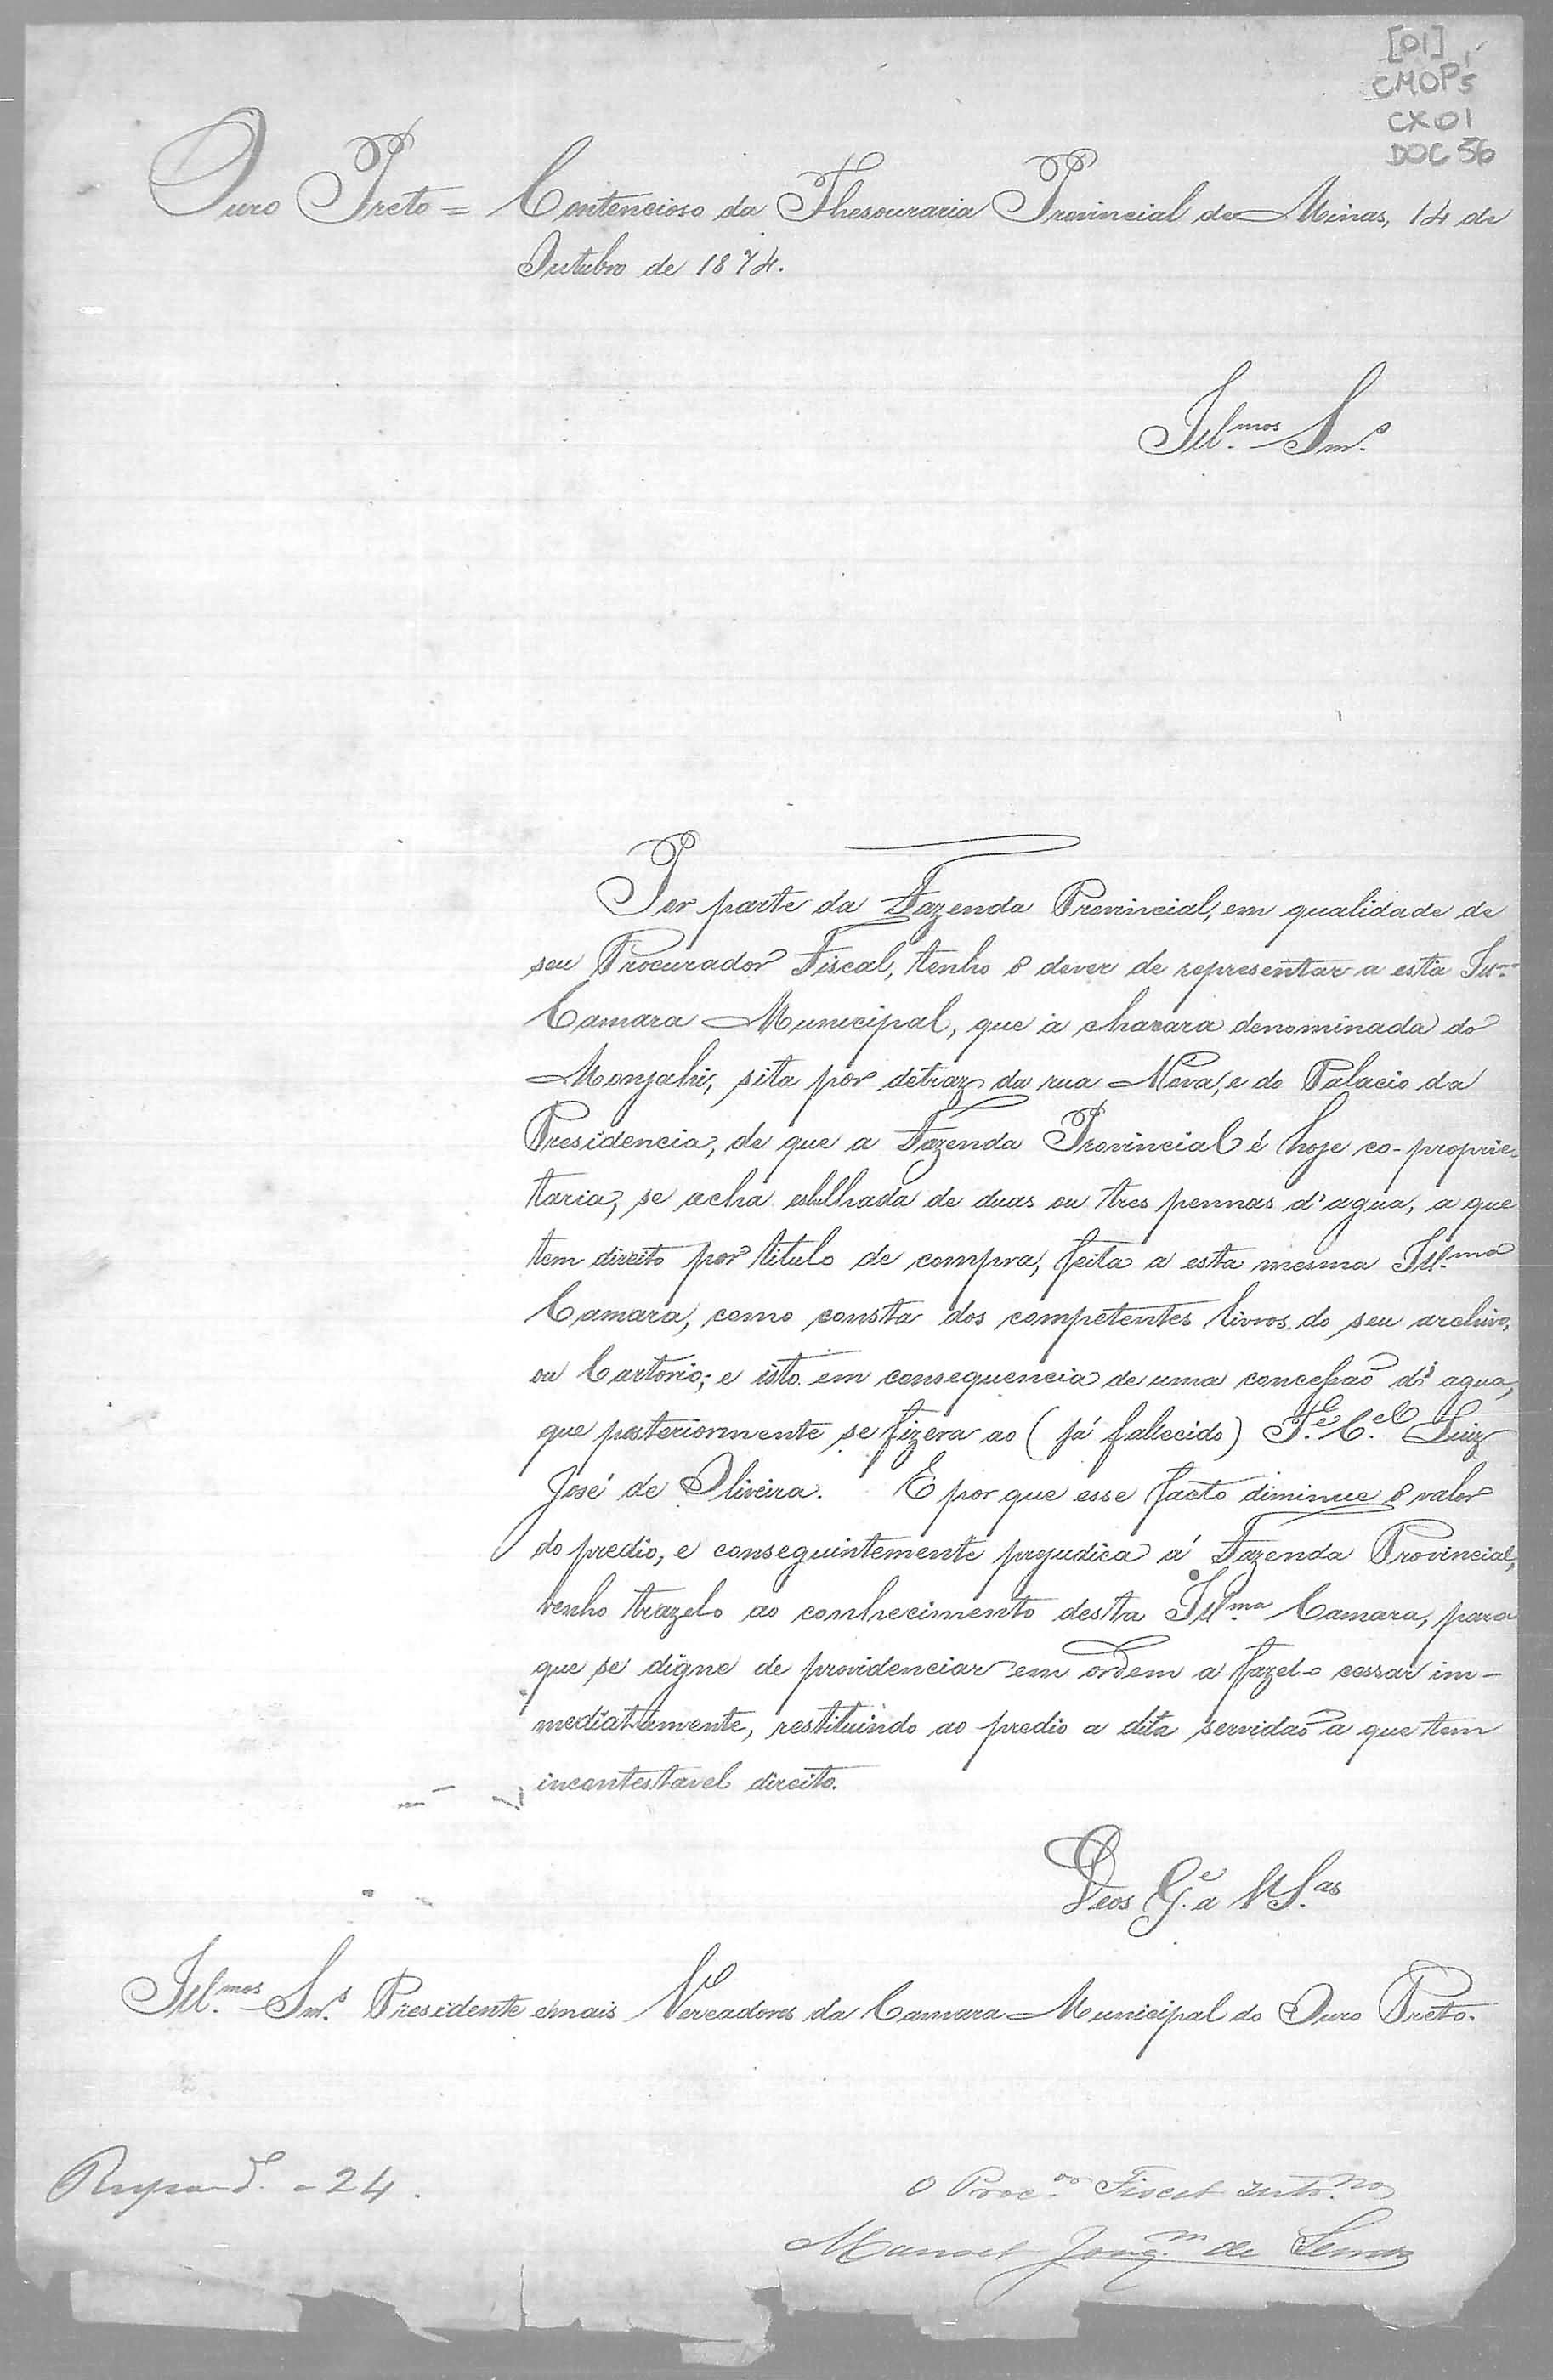 [01]
CMOP5
CX01
DOC 56
Ouro Preto = Contencioso da Thesouraria Provincial de Minas, 14 de
Outubro de 1874.
Ill.mos Snr.s
Por parte da Fazenda Provincial, em qualidade de
seu Procurador Fiscal, tenho o dever de representar a esta Ill.ma
Camara Municipal, que a chacara denominada do
Monjahi, sita por detraz da rua Nova, e do Palacio da
Presidencia, de que a Fazenda Provincial é hoje co-proprie-
taria, se acha esbulhada de duas ou tres pennas d'agua, a que
tem direito por titulo de compra, feita a esta mesma Ill.ma
Camara, como consta dos competentes livros do seu archivo,
ou Cartorio; e isto em consequencia de uma concessão d'agua,
que posteriormente se fizera ao (já fallecido) T.e C.el Luiz
José de Oliveira. E por que esse facto diminue o valor
do predio, e conseguintemente prejudica á Fazenda Provincial,
venho trazelo ao conhecimento desta Ill.ma Camara, para
que se digne de providenciar em ordem a fazel-o cessar im-
mediatamente, restituindo ao predio a dita servidão a que tem
incontestavel direito.
Deos G.e a VV S.as
Ill.mos Snr.s Presidente e mais Vereadores da Camara Municipal do Ouro Preto.
Respond. a 24.
O Proc.or Fiscal Int.no
Manoel Joaq.m de Lemos